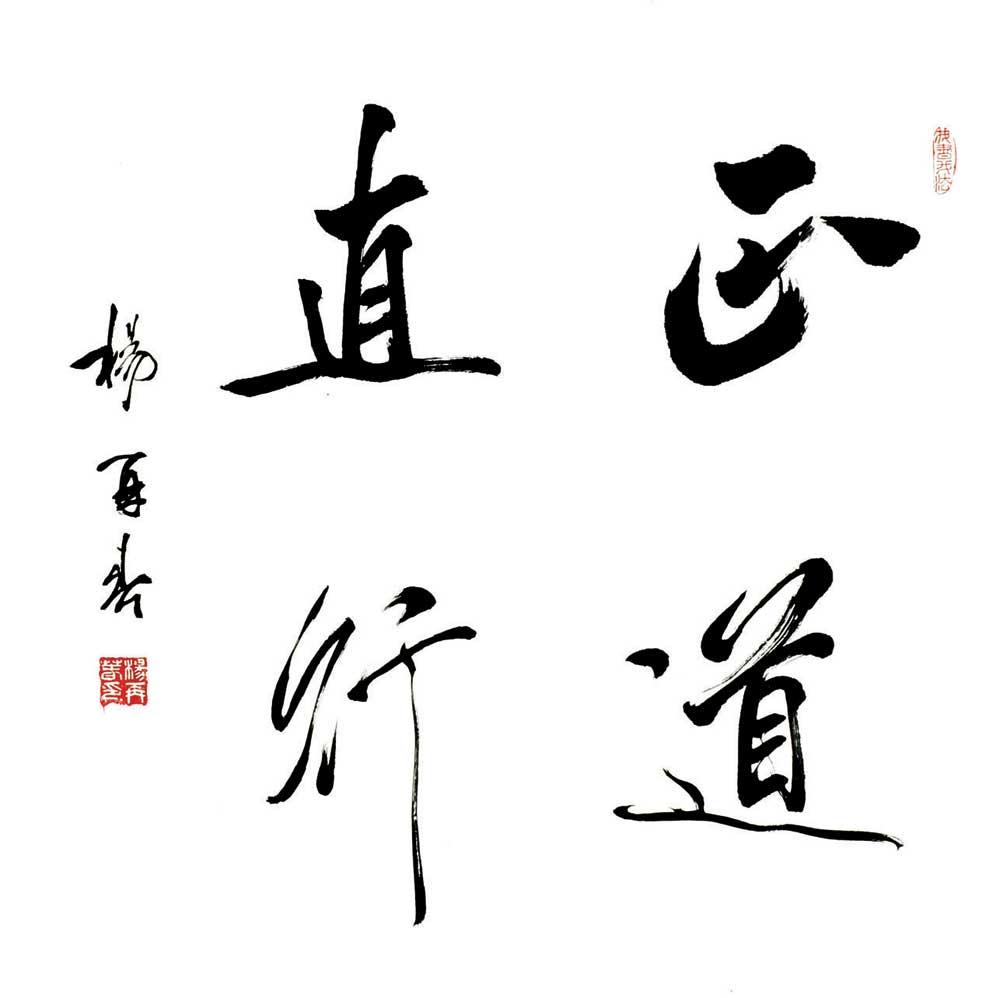 正道
直行
楊再春
楊再春印